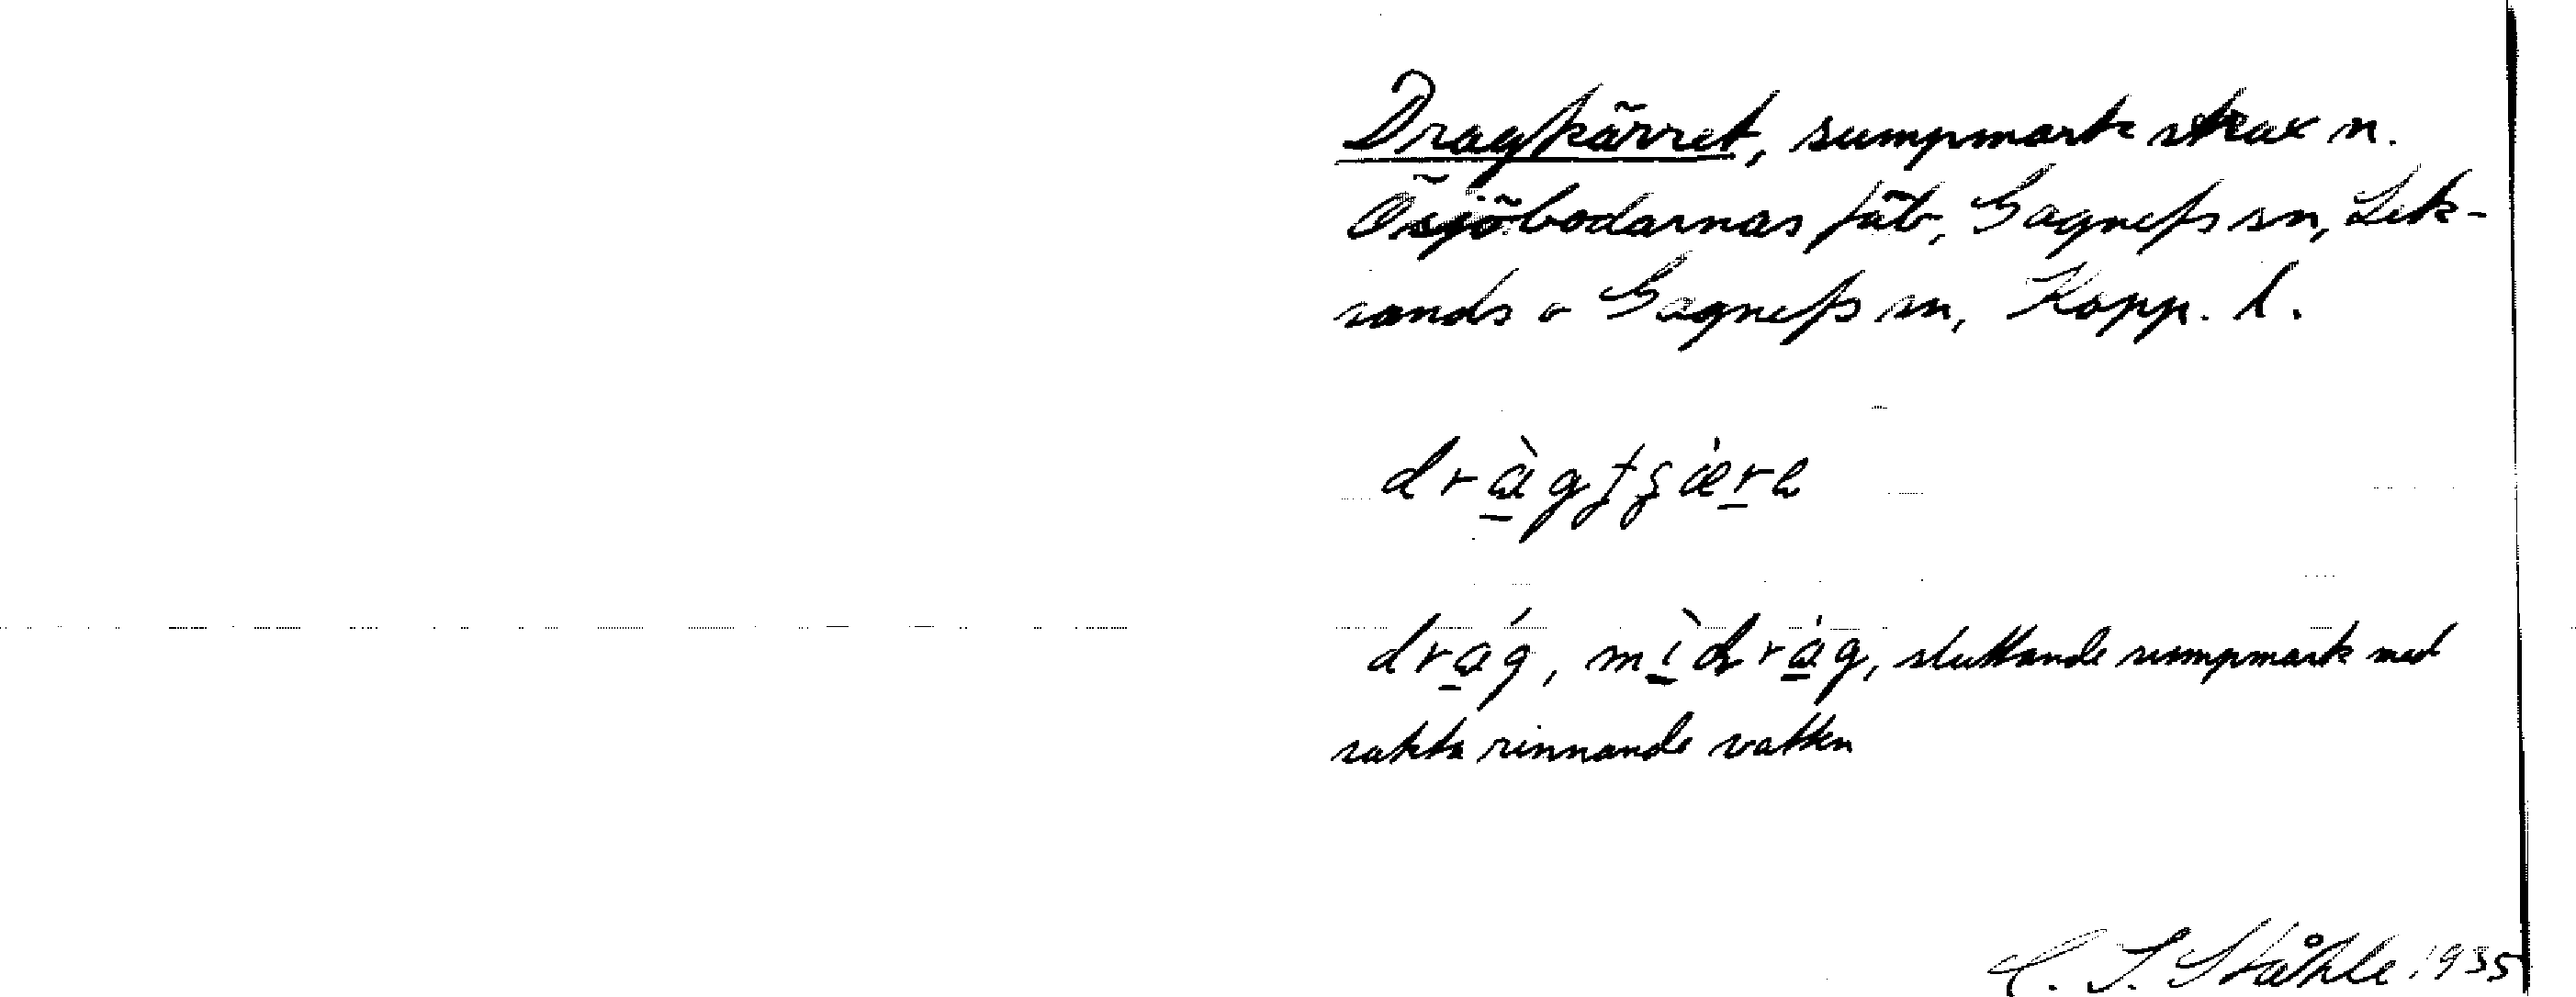 Dragkärret, sumpmark strax n.
Ösjöbodarnas fäb, Gagnefs sn, Lek-
sands o Gagnefs sn, Kopp. l.
drà̲gtʂæ̀r̲a
drá̲g, mì̲drà̲g, sluttande sumpmark med
sakta rinnande vatten
C. I. Ståhle 1935